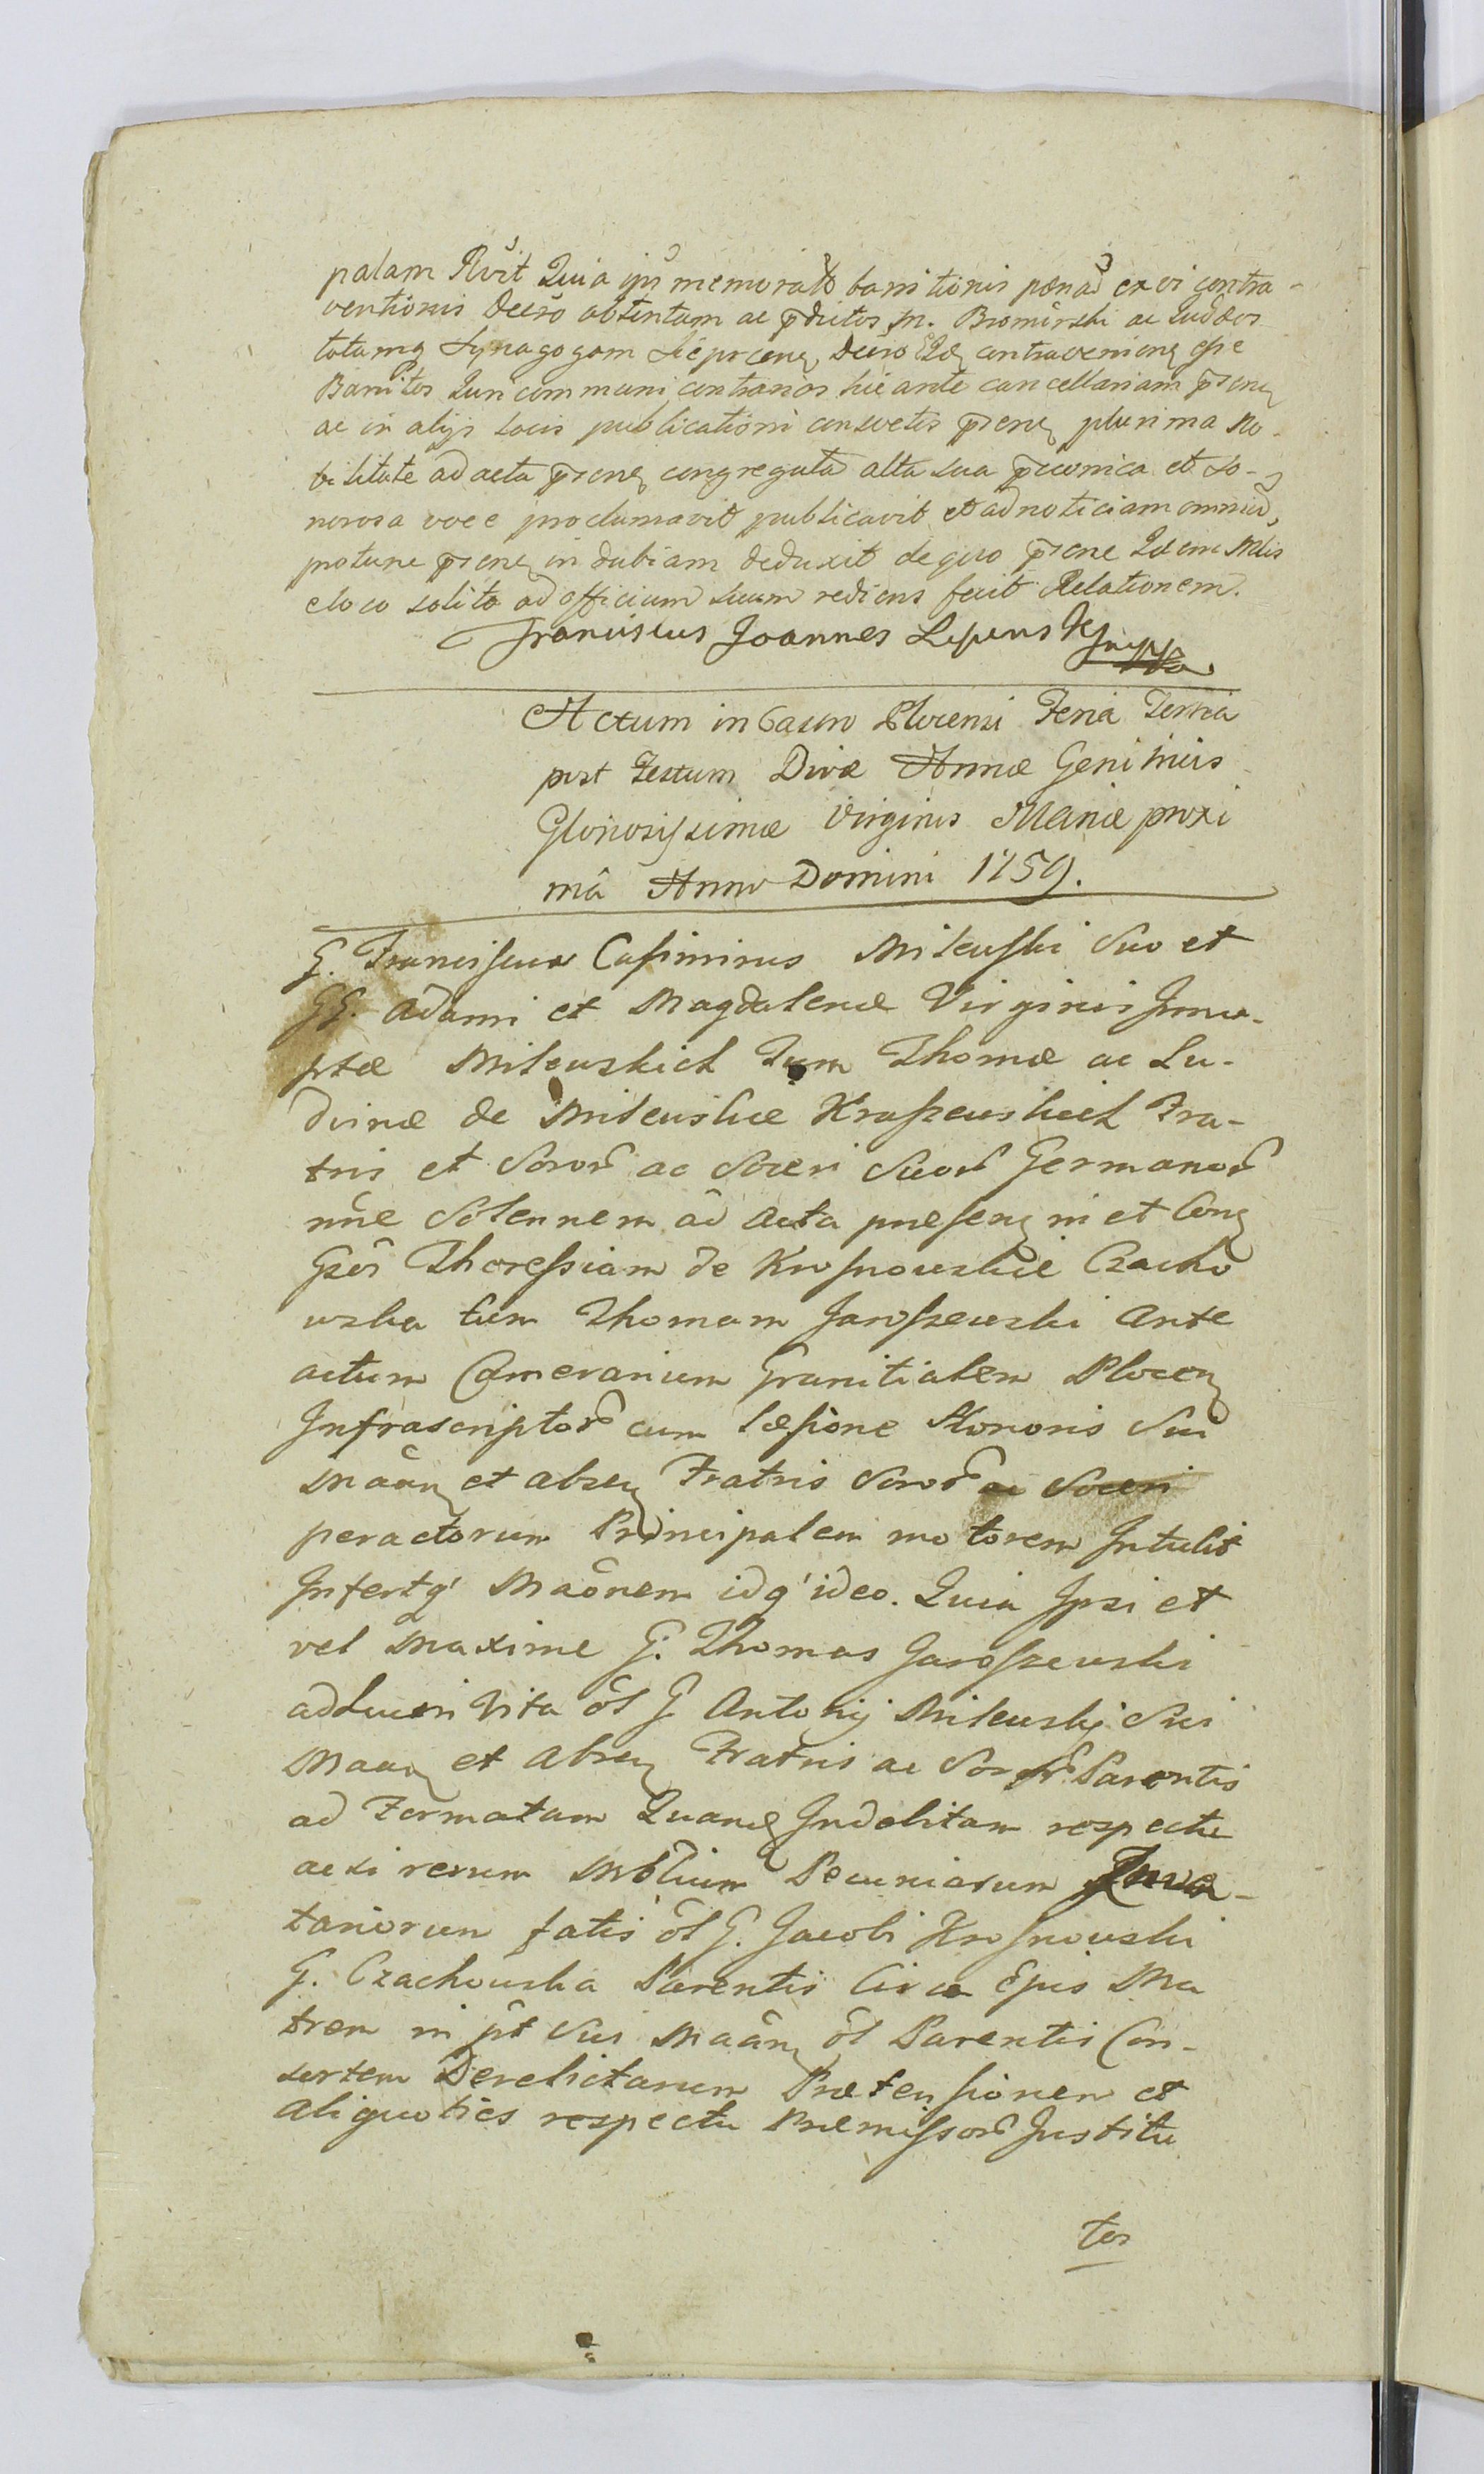 palam Rvit Quia ips memoratã bannitionis pœnã ex vi contra-
ventionis Decrõ obtentam ac p̃dictos M. Bromirski ac Judæos
totamq Synagogam Sieprcen Decro Eid contravenien esse
Bannitos Juri communi contrarios hic ante cancellariam p̃sen
ac in alijs locis publicationi consvetis p̃sen plurima No-
bilitate ad acta p̃sen congregata alta sua p̃conica et so-
norosa voce proclamavit publicavit et ad noticiam omniũ
protunc p̃sen in dubiam deduxit de quo p̃sene Idem Mlis
eloco solito ad officium suum rediens fecit Relationem.
Franciscus Joannes Lepens
Actum in Castro Plocensi Feria Tertia
post Festum Divæ Annæ Genitricis
Gloriosissimæ Virginis Mariæ proxi
mâ Anno Domini 1759.
G. Franciscus Casimirus Mileuski Suo et
GG. Adami et Magdalenæ Virginis Innu-
ptæ Mileuskich Tum Thomæ ac Lu-
dvinæ de Mileuskie Kraszeuskich Fra-
tris et Soror ac Soceri Suor Germanor
nñe Solennem ad Acta præsen in et Con
Gsos Theressiam de Krosnowskie Czacho
wska tum Thomam Jaroszewski Ante
actum Camerarium Granitialem Plocen
Infrascriptor cum læsione Honoris Sui
Maãn et absen Fratris Soror ac Soceri
peractorum Principalem motorem Intulit
Infertq' Maõnem idq' ideo. Quia Ipsi et
vel maxime G. Thomas Jaroszewski
adhucin Vita ol G Antonij Mileuskj Sui
Maan et Absen Fratris ac Soror Parentis
ad Formatam Quand Indebitam respectu
acsi rerum Mõlium Pecuniarum Inven-
tariorum fatis ol G. Jacobi Krosnowski
G. Czachouska Parentis Circa Ejus Ma
trem in p̃t Sui Maãn ol Parentis Con-
sortem Derelictarum Prætensionem et
Aliquoties respectu Præmissor Institu
tor